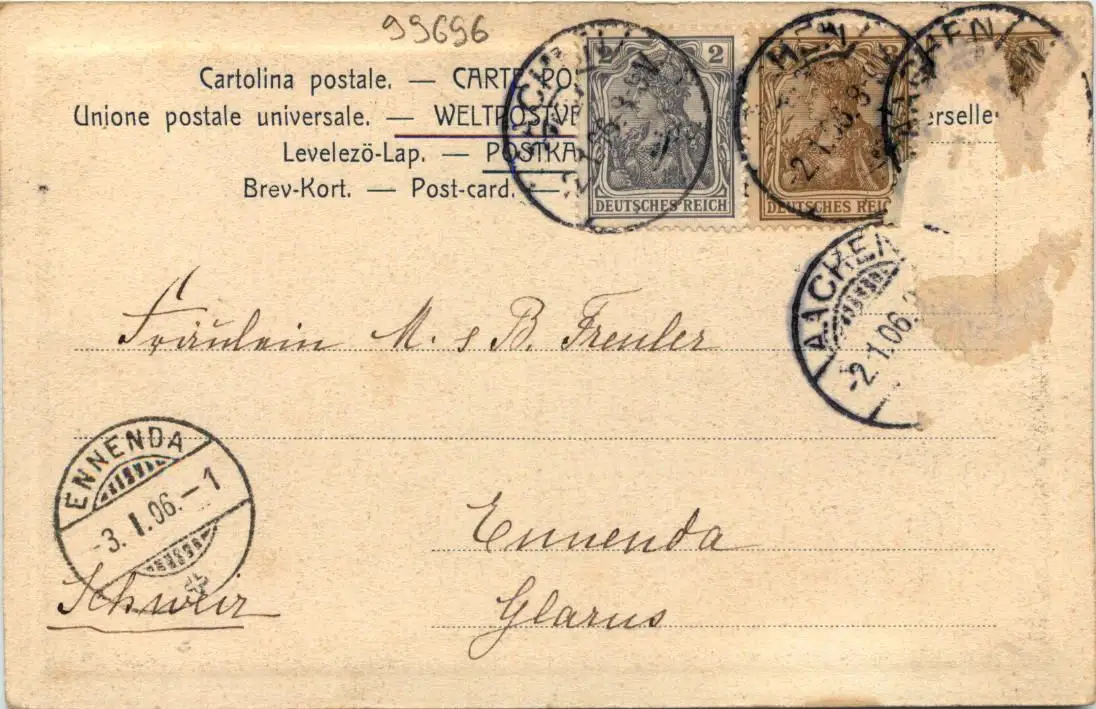 99696
Cartolina postale. — CARTE PO
Unione postale universale. — WELTPOSTVE erselle
Levelezö-Lap. — POSTKA
Brev-Kort. — Post-card. —
2
DEUTSCHES REICH
3
DEUTSCHES REIC
AACHEN
-2.1.06.8-9N
HEN
-2.1.06.8
AACHEN
AACHEN
-2.1.06.
Fräulein M. & B. Freuler
ENNENDA
-3.I.06.-1
Ennenda
Schweiz
Glarus